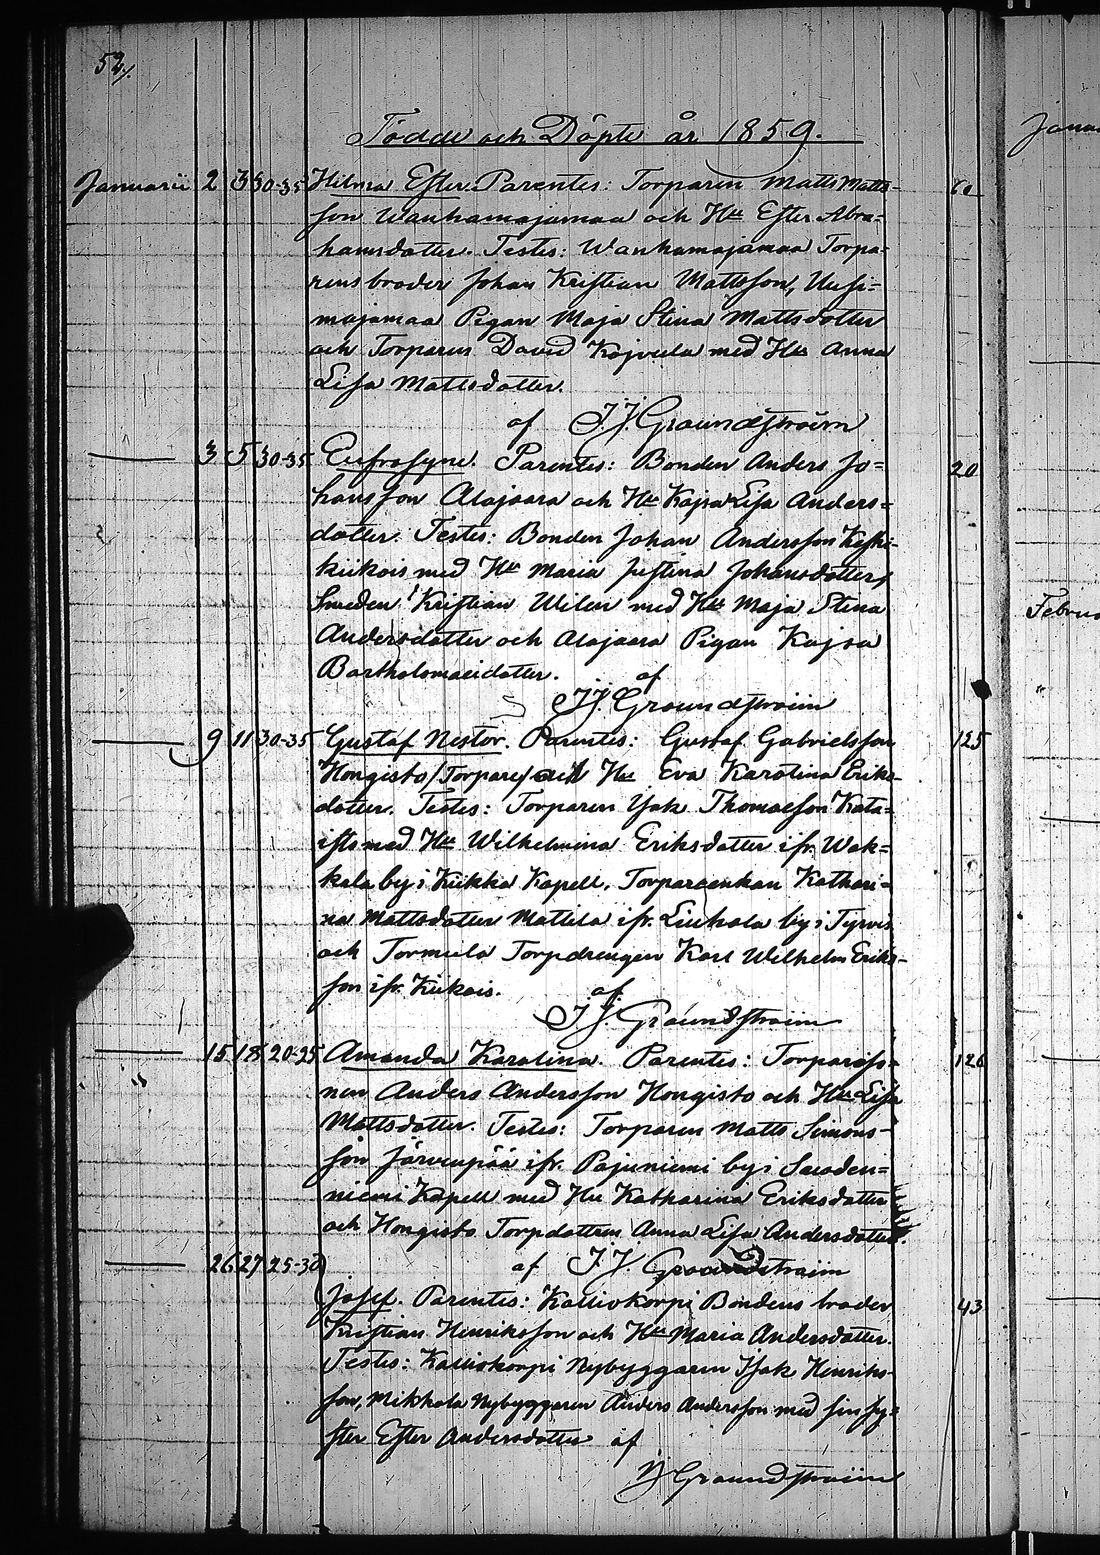 52/.
Födde och Döpte år 1859.
Januarii 2 3 30-35 Hilma Ester. Parentes: Torparen Matts Matts- 
son Wanhamajamaa och Hu Ester Abra=
hamsdotter. Testes: Wanhamajamaa Torpa=
rens broder Johan Kristian Mattsson, Uusi=
majamaa Pigan Maja Stina Mattsdotter
och Torparen David Kojvula med Hu Anna
Lisa Mattsdotter.
af J.J. Groundstroim
3 5 30-35 Eufrosyne. Parentes: Bonden Anders Jo= 20
hansson Alajaara och Hu Kajsa Lisa Anders=
dotter. Testes: Bonden Johan Andersson Keski-
kiikois med Hu Maria Justina Johansdotter,
Smeden Kristian Wilen med Hu Maja Stina
Andersdotter och Alajaara Pigan Kajsa
Bartholomaeidotter. af
J.J. Groundstroim
9 11 30-35 Gustaf Nestor. Parentes: Gustaf Gabrielsson 125
Hongisto /Torpare/ och Hu Eva Karolina Eriks-
dotter. Testes: Torparen Isak Thomasson Kata=
isto med Hu Wilhelmina Eriksdotter ifr. Wak=
kala by i Kiikka Kapell, Torpareenkan Kathari=
na Mattsdotter Mattila ifr. Liuhala by i Tyrvis
och Tormula Torpdrengen Karl Wilhelm Eriks-
son ifr. Kiikois. af
J.J. Groundstroim
15 18 20-25 Amanda Karolina. Parentes: Torpareso= 126
nen Anders Andersson Hongisto och Hu Lisa
Mattsdotter. Testes: Torparen Matts Simons-
son Järvenpää ifr. Pajuniemi by i Suoden=
niemi Kapell med Hu Katharina Eriksdotter
och Hongisto Torpdottren Anna Lisa Andersdotter.
26 27 25-30 af J.J. Groundstroim
Josef. Parentes: Kalliokorpi Bondens broder 43
Kristian Henriksson och Hu Maria Andersdotter.
Testes: Kalliokorpi Nybyggaren Isak Henriks-
son, Mikkola Nybyggaren Anders Andersson med sin sy=
ster Ester Andersdotter af
JJ Groundstroim